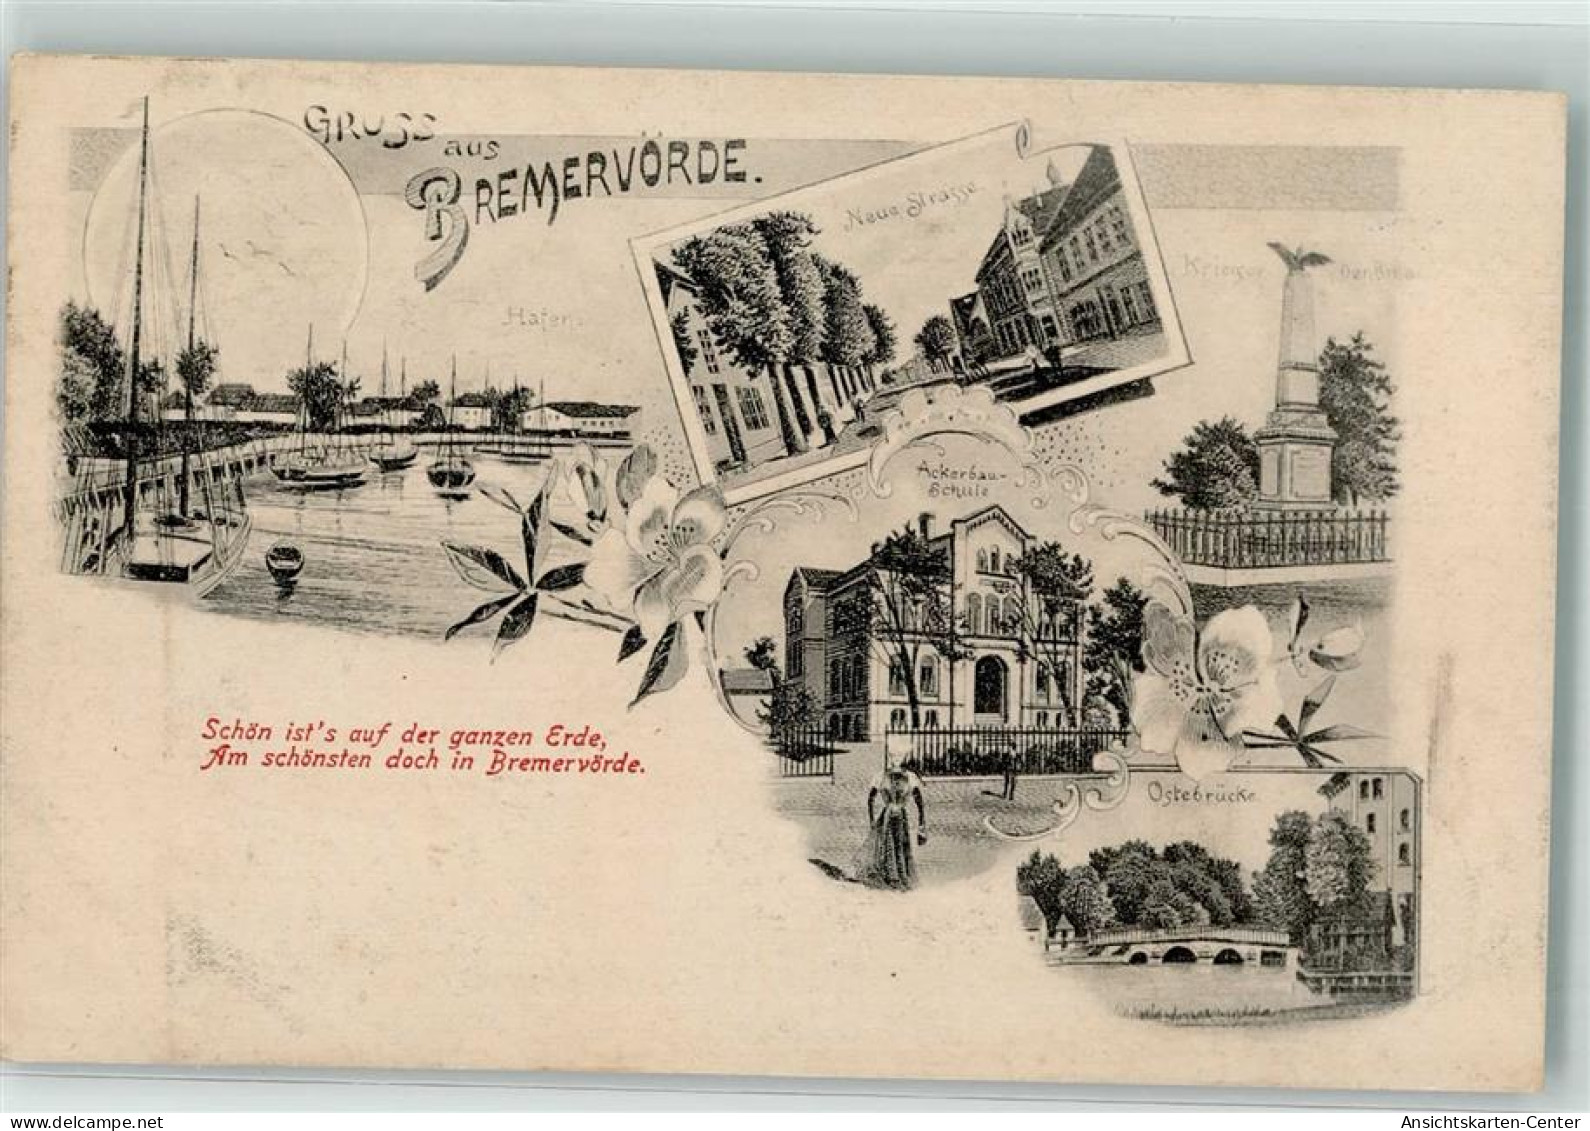 GRUSS
aus
BREMERVÖRDE.
Hafen.
Neue Strasse.
Krieger Denkmal
Ackerbau-
Schule
Ostebrücke.
Schön ist's auf der ganzen Erde,
Am schönsten doch in Bremervörde.
delcampe.net
Ansichtskarten-Center